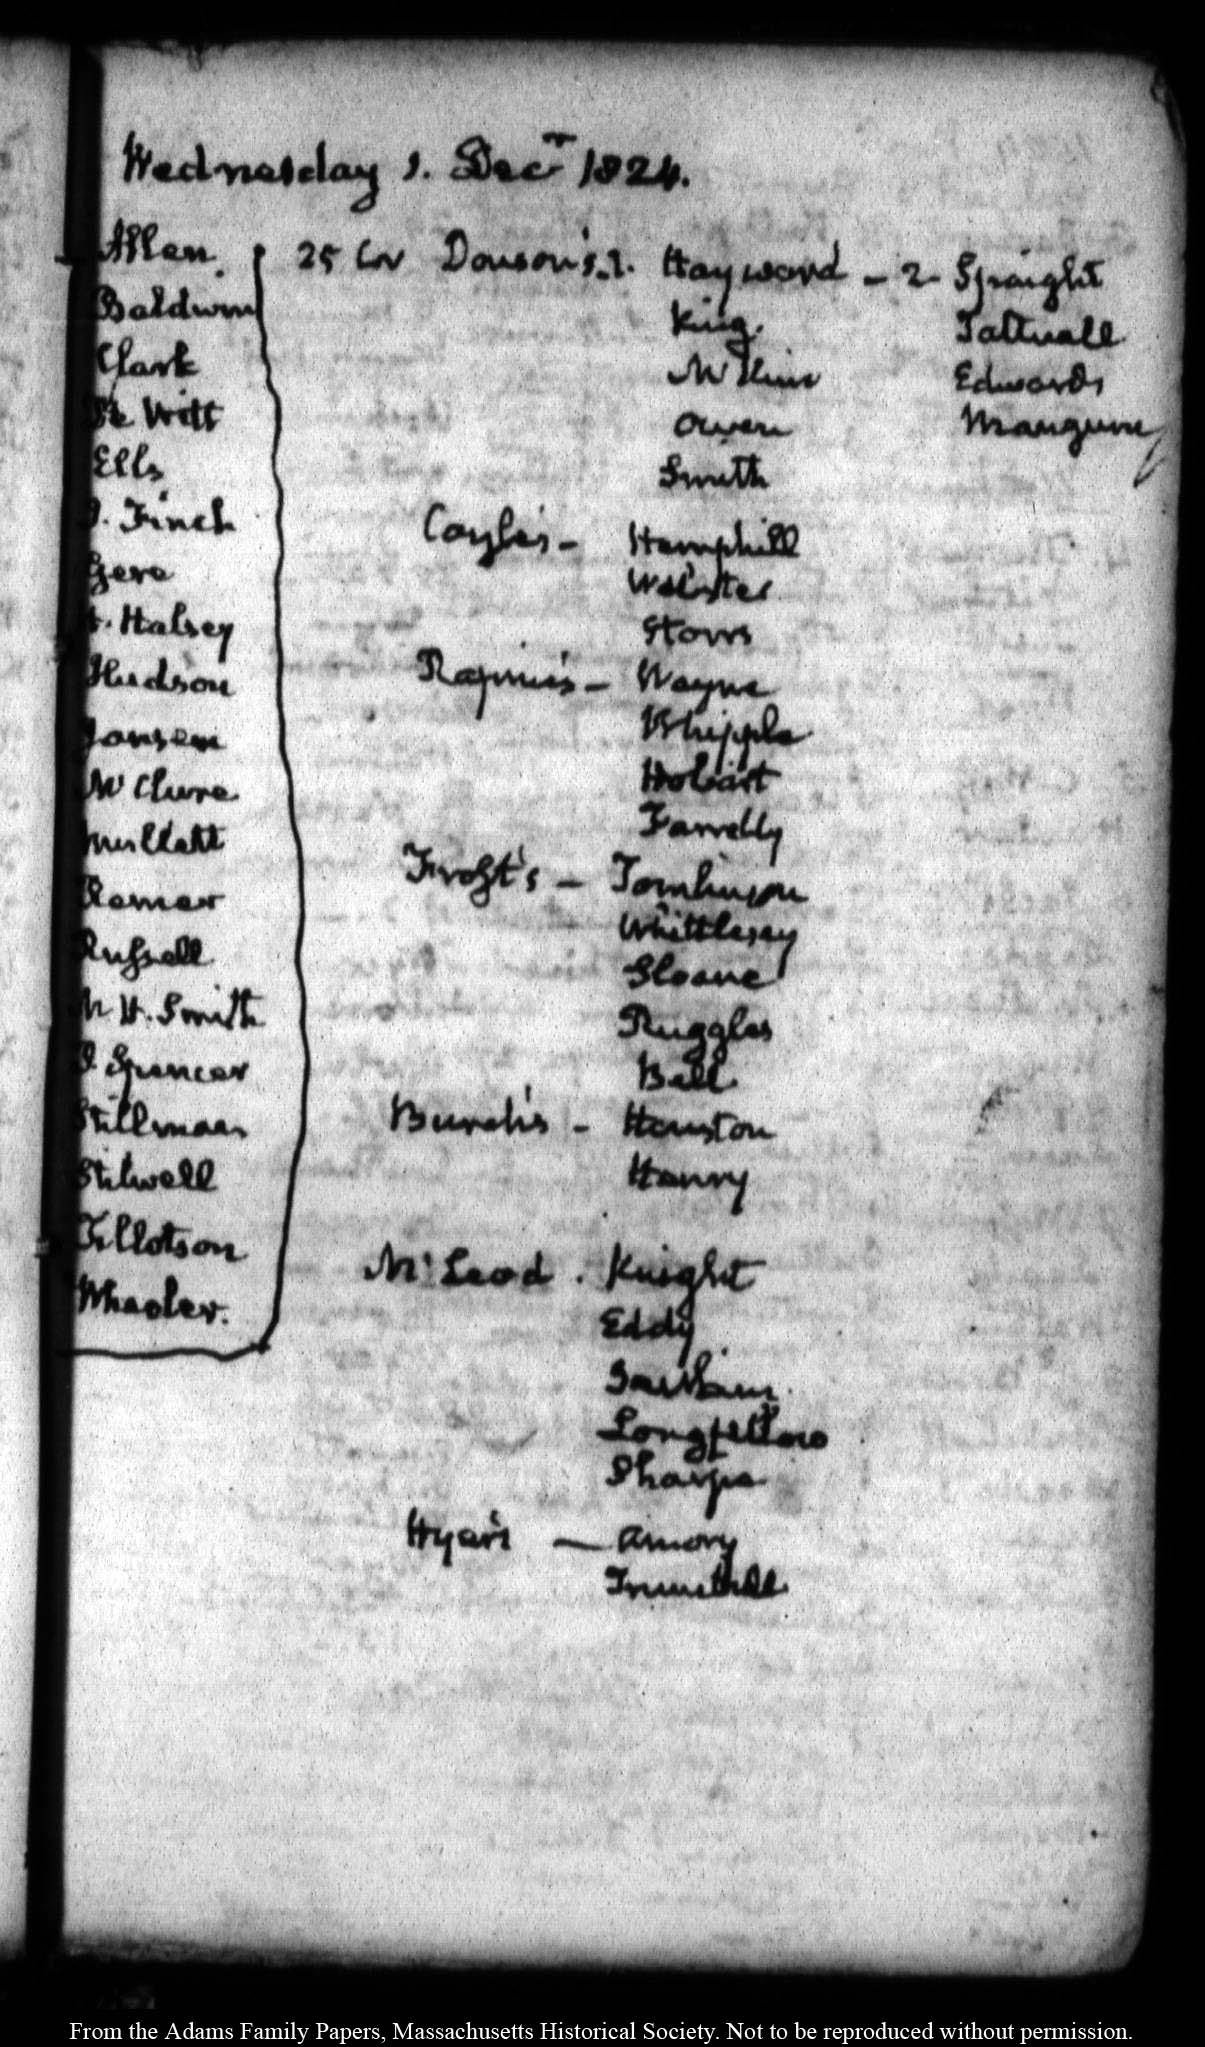 Wednesday 1. Decr 1824.
Allen. 25 Cov Dowson's. 1. Hayward - 2 - Spaight
Baldwin King. Tattnall
Clark McKim Edwards
De Witt Owen Mangum
Ells Smith
I. Finch Coyle's - Hemphill
Gere Webster
H. Halsey Storrs
Hudson Wayne
Jansen Whipple
McClure Hobart
Farrelly
Remer Frost's - Tomlinson
Russell Whittlesey
M H. Smith Sloane
I. Spencer Ruggles
Bell
Stillman Burch's - Houston
Stilwell Henry
Tillotson McLeod. Knight
Wheeler. Eddy
Longfellow
Sharpe
Hyer's - Amory
From the Adams Family Papers, Massachusetts Historical Society. Not to be reproduced without permission.